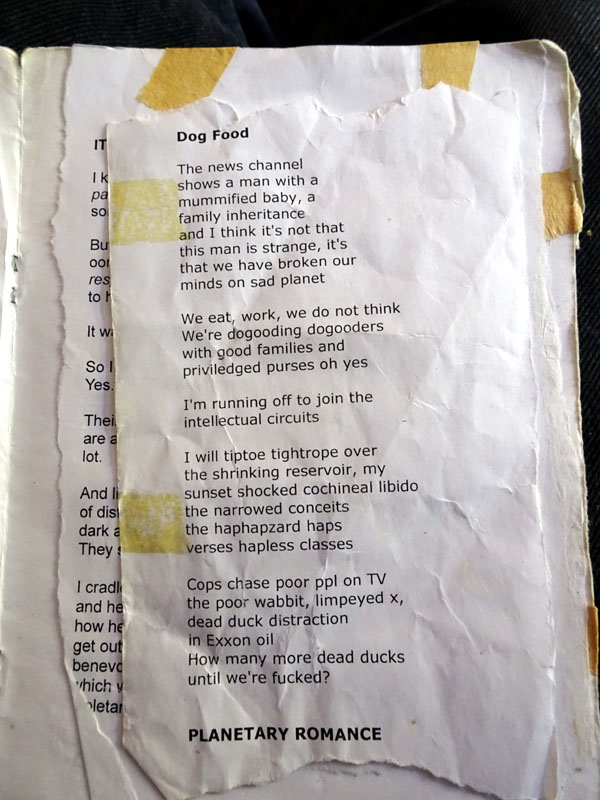 IT
I
so
to
It
So I
Yes.
are
lot.
And
of
dark
They
I
and he
how he
get out
Dog Food
The news channel
shows a man with a
mummified baby, a
family inheritance
and I think it's not that
this man is strange, it's
that we have broken our
minds on sad planet
We eat, work, we do not think
We're dogooding dogooders
with good families and
priviledged purses oh yes
I'm running off to join the
intellectual circuits
I will tiptoe tightrope over
the shrinking reservoir, my
sunset shocked cochineal libido
the narrowed conceits
the haphapzard haps
verses hapless classes
Cops chase poor ppl on TV
the poor wabbit, limpeyed x,
dead duck distraction
in Exxon oil
How many more dead ducks
until we're fucked?
PLANETARY ROMANCE